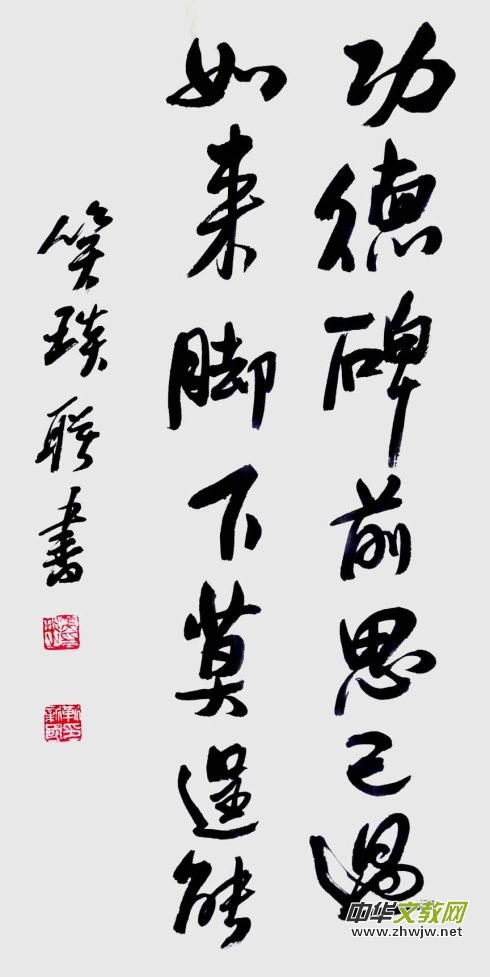 功德碑前思己過
如来脚下莫逞能
笑琰联書
中华文教网
www.zhwjw.net